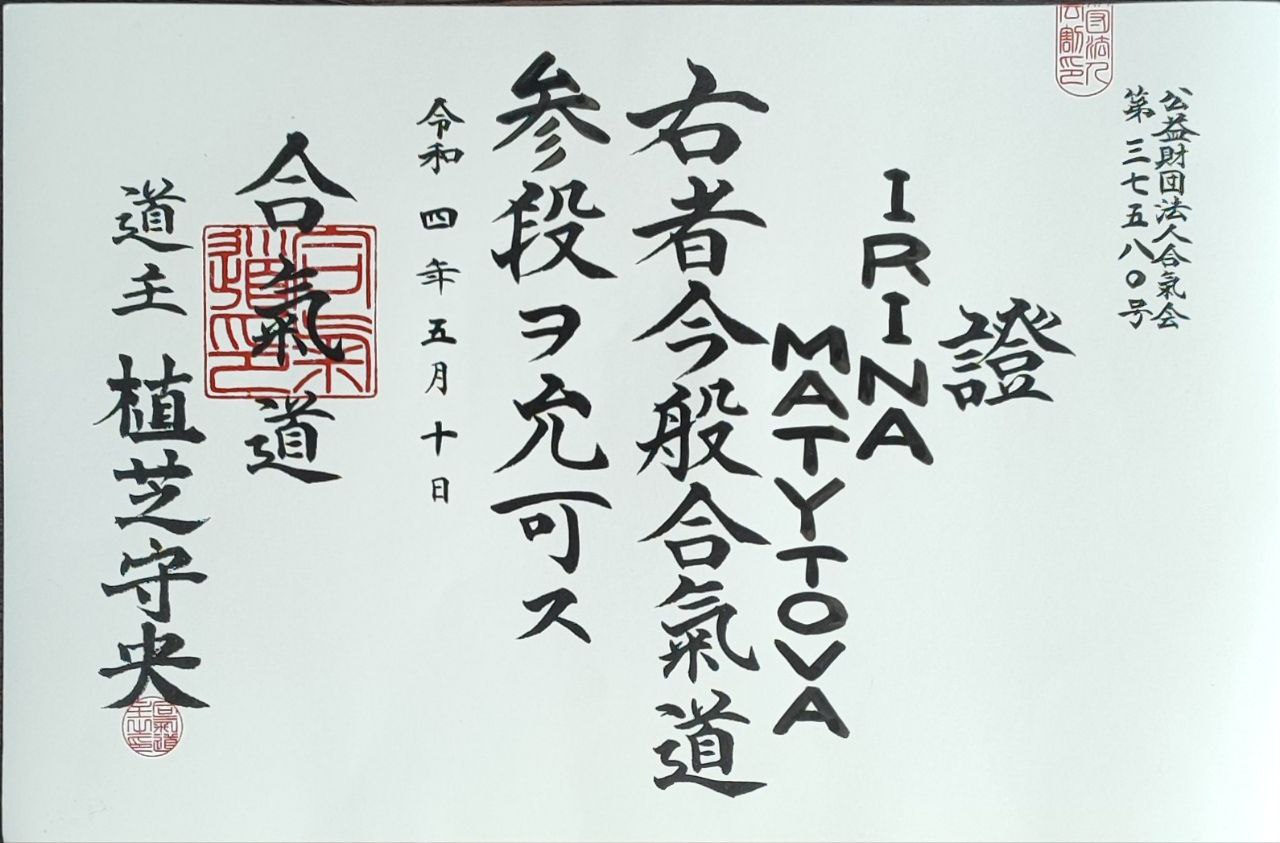 公益財団法人合氣会
第三七五八〇号
證
IRINA
MATYTOVA
右者今般合氣道
参段ヲ允可ス
令和四年五月十日
合氣道
道主 植芝守央
合氣道印